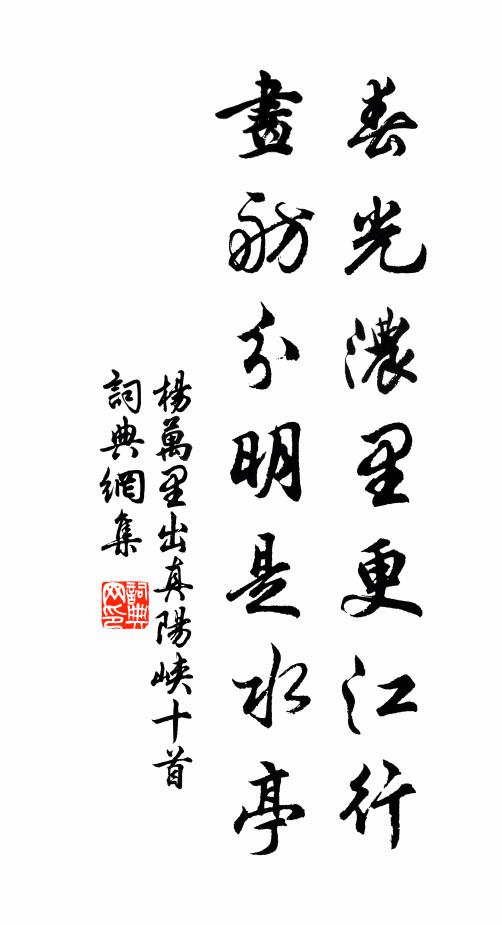 春光濃里更江行
畫舫分明是水亭
楊萬里出真陽峽十首
詞典網集
詞典网印